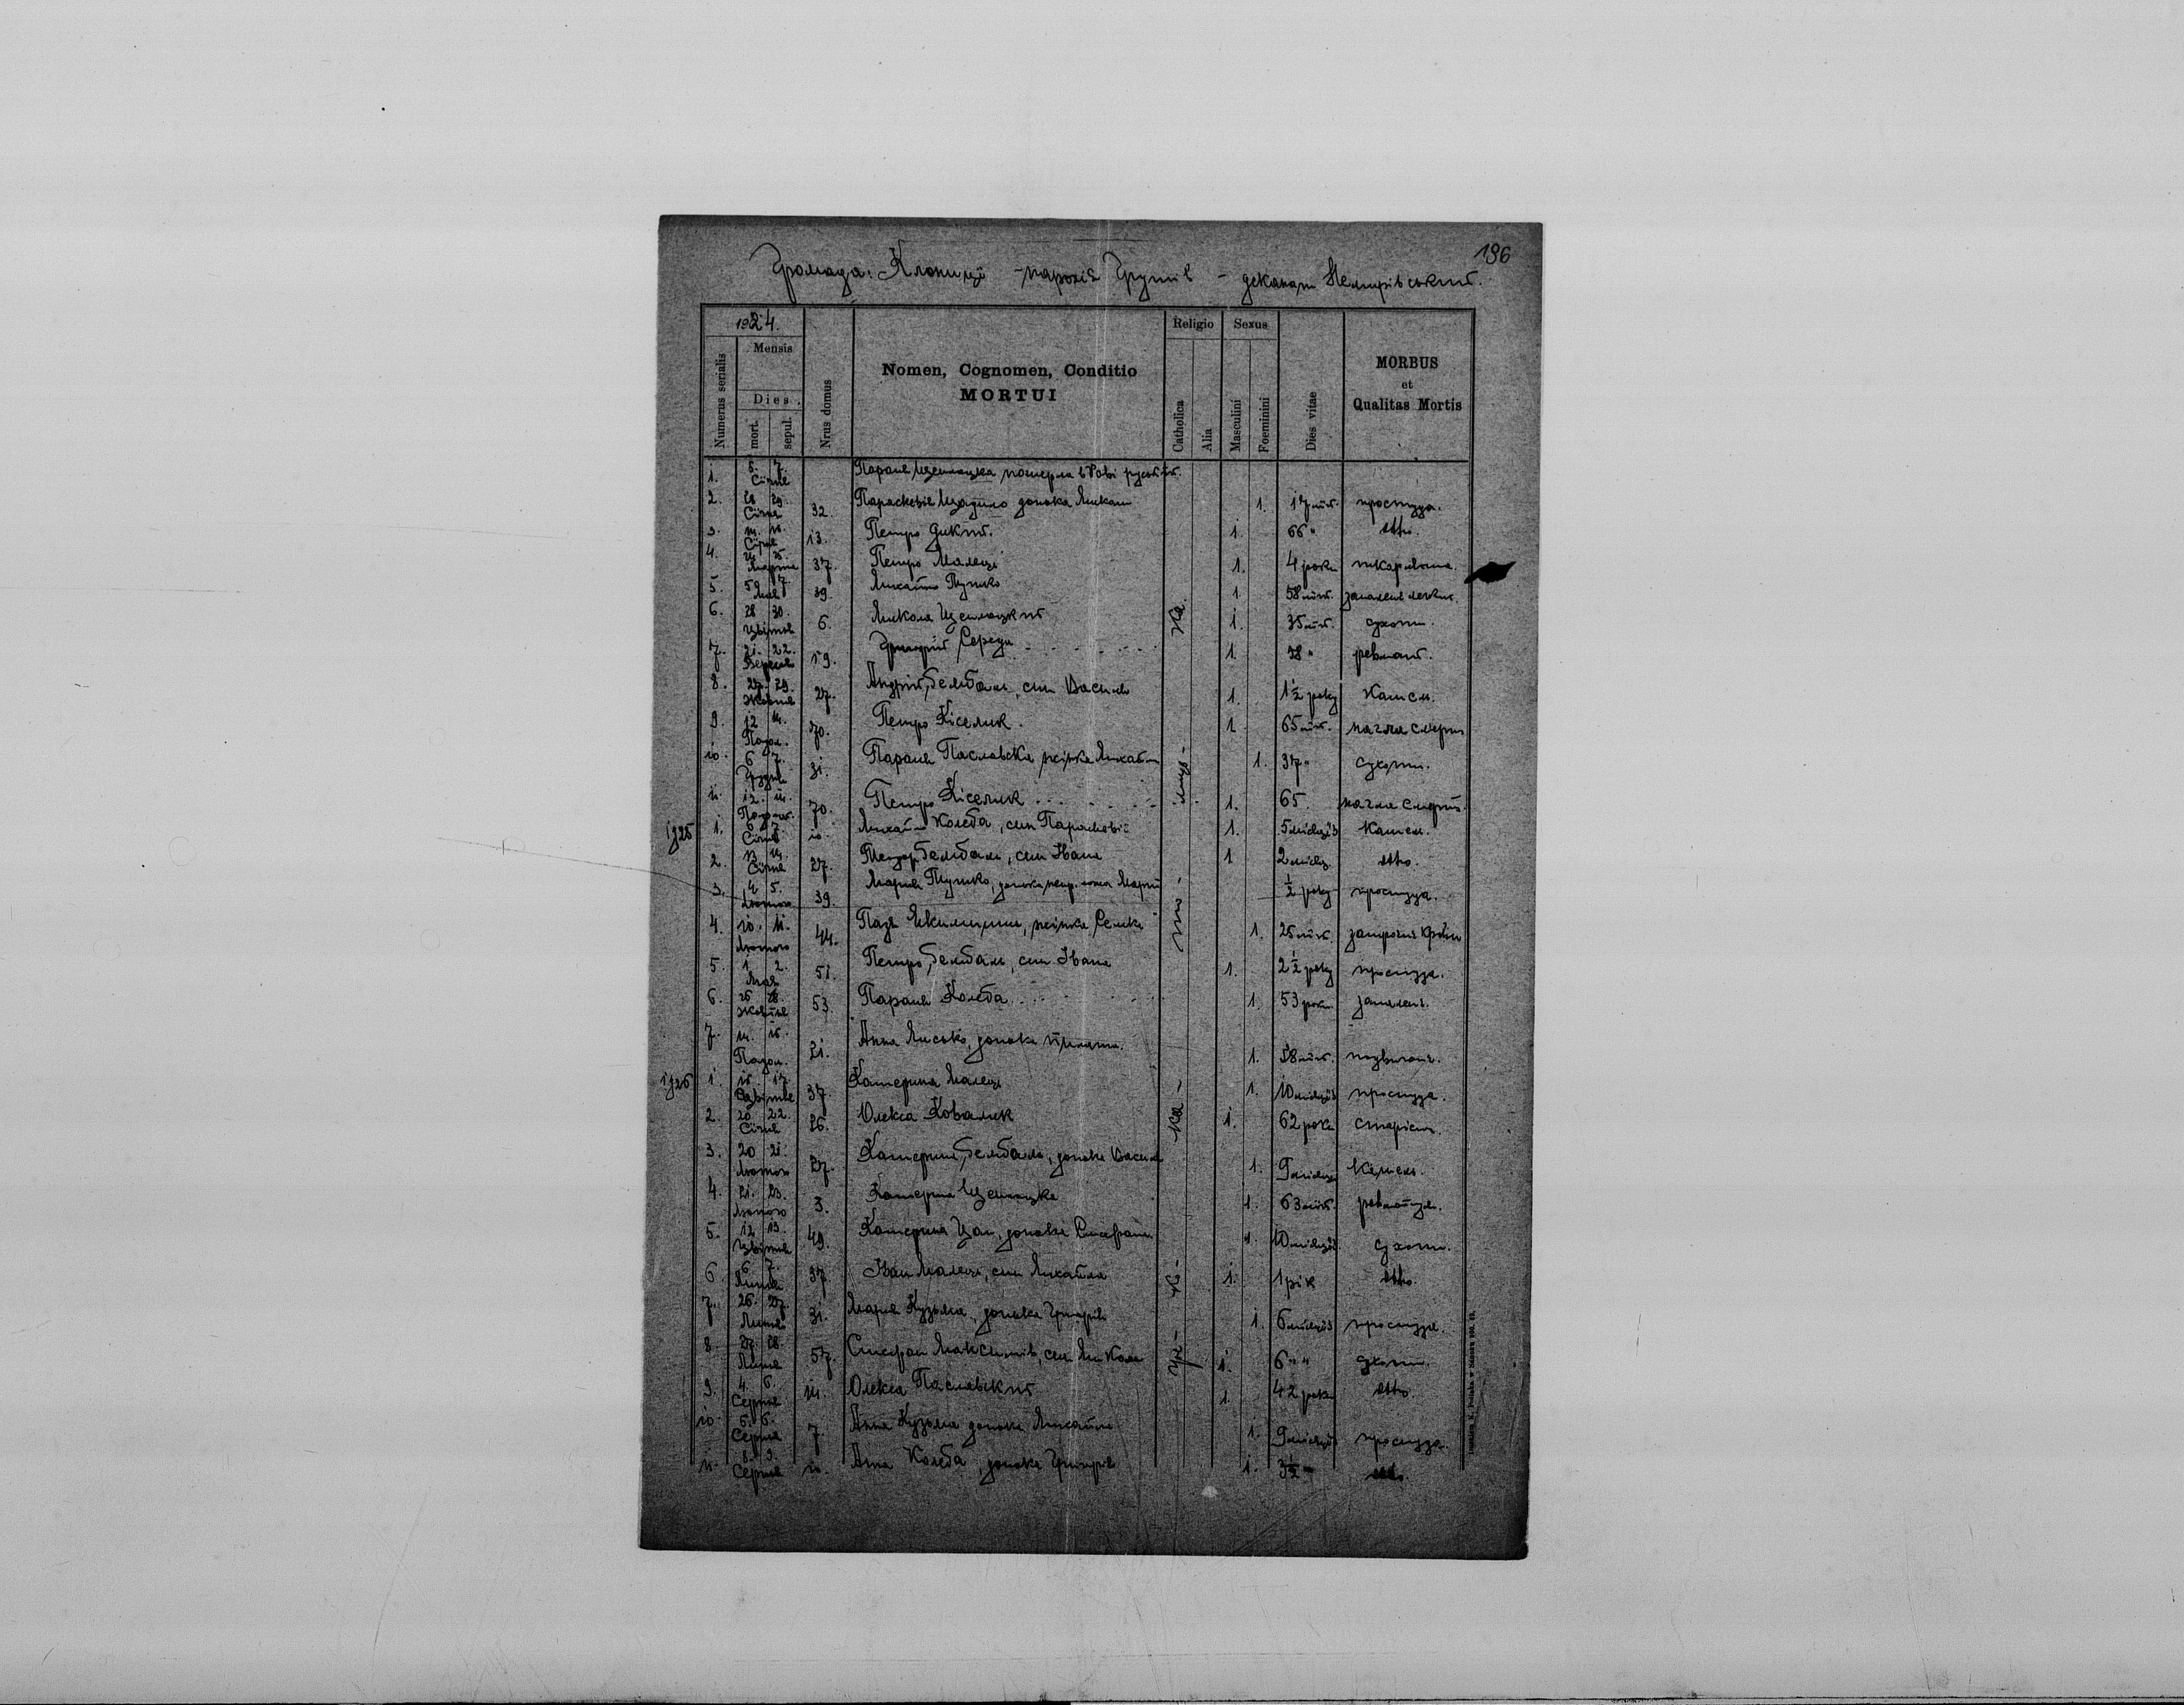 196
Громада: Клониці - парохія Грушів - деканат Немирівський.
1924.
Numerus serialis
Mensis
Dies
mort.
sepul.
Nrus domus
Nomen, Cognomen, Conditio
MORTUI
Religio
Catholica
Alia
Sexus
Masculini
Foeminini
Dies vitae
MORBUS
et
Qualitas Mortis
1. 6. 7. Січня Параня померла в Раві руській.
2. 28 29 Січня 32. Параскевія донька 1. 17 простуда.
3. 14. 15. Січня 13. Петро Дикий. 1. 66 " dtto.
4. 24 25. Марта 37. Петро Малець 1. 4 роки
5. 5 7. Мая 39. Михайло Тушко 1. 58 літ.
6. 28 30. Цвітня 6. Микола 1. 35 літ. сухоти.
7. 21. 22. Вересня 19. Григорій Середа 1. 38 "
8. 27. 29. Жовтня 27. Андрій Бембаль, син Василя 1. 1½ року Кашель.
9. 12 14. Падол. 70. Петро Кіселик. 1. 65 літ. нагла смерть
10. 6 7. Грудня 31. Параня Паславска, жінка Михайла 1. 37 " сухоти.
11. 12. 14. Падол. 70. Петро Кіселик 1. 65. нагла смерть.
1925
1. 6 7. Січня 10. Михайло Колеба, син Параскевії 1. 5 місяців Кашель.
2. 13 14. Січня 27. Бембаль, син Івана 1 2 місяц. dtto.
3. 4 5. Лютого 39. Марія Тушко, донька Марії ½ року простуда.
4. 10. 11. Лютого 44. жінка Семка 1. 25 літ. крови
5. 1 2. Мая 51. Петро Бембаль, син Івана 1. 2½ року простуда.
6. 26 28. Жовтня 53. Параня Колеба 1. 53 роки запален.
7. 14. 15. Падол. 21. Анна Лисько, донька 1. 58 літ.
1926
1. 15 17. Цвітня 37. Катерина Малець 1. 10 місяців простуда.
2. 20 22. Січня 26. Олекса Ковалик 1. 62 роки старість.
3. 20 21. Лютого 27. Катерина Бембаль, донька Василя 1. 9 місяців Кашель.
4. 21. 23. Лютого 3. Катерина 1. 63 літ.
5. 12 13. Цвітня 49. Катерина Цап, донька Стефана 1. 10 місяців сухоти.
6. 6 7. Липня 37. Іван Малець, син Михайла 1. 1 рік dtto.
7. 26. 27. Липня 31. Марія Кузьма, донька Григорія 1. 6 місяців простуда.
8. 27. 28. Липня 57. Стефан Максимів, син Миколи 1. 6 " " сухоти.
9. 4. 6. Серпня 14. Олекса Паславский 1. 42 роки dtto.
10. 5. 6. Серпня 7. Анна Кузьма донька Михайла 1. 9 місяців простуда.
11. 8. 9. Серпня 10. Анна Колеба, донька Григорія 1. 3½ " dtto.
греко-католицка